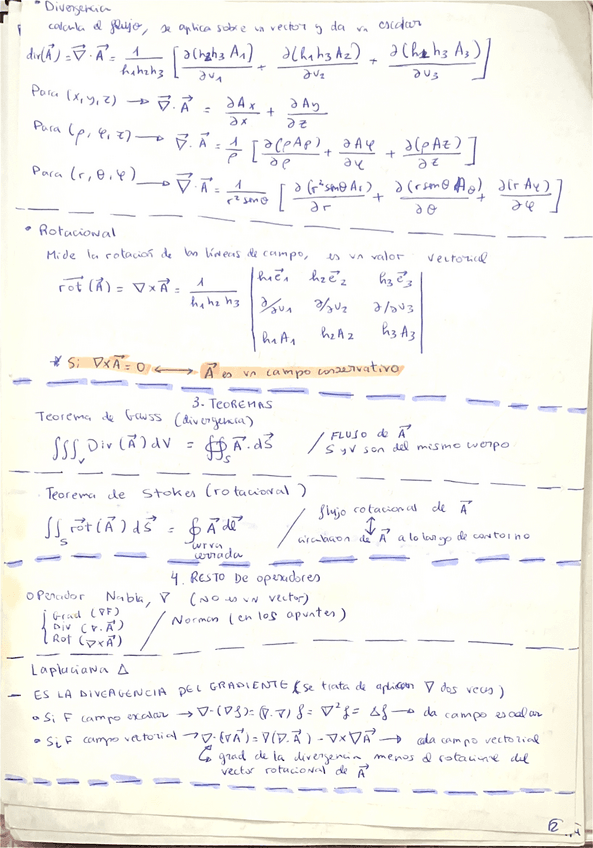 • Divergencia
calcula el flujo, se aplica sobre un vector y da un escalar
div(A⃗) = ∇⃗·A⃗ = 1/(h1h2h3) [∂(h2h3 A1)/∂u1 + ∂(h1h3 A2)/∂u2 + ∂(h1h2 A3)/∂u3]
Para (x,y,z) → ∇⃗·A⃗ = ∂Ax/∂x + ∂Ay/∂z
Para (ρ, φ, z) → ∇⃗·A⃗ = 1/ρ [∂(ρAρ)/∂ρ + ∂Aφ/∂φ + ∂(ρAz)/∂z]
Para (r, θ, φ) → ∇⃗·A⃗ = 1/(r² senθ) [∂(r² senθ Ar)/∂r + ∂(r senθ Aθ)/∂θ + ∂(r Aφ)/∂φ]
• Rotacional
Mide la rotación de las líneas de campo, es un valor vectorial
rot⃗(A⃗) = ∇×A⃗ = 1/(h1 h2 h3) | h1e⃗1 h2e⃗2 h3e⃗3 |
| ∂/∂u1 ∂/∂u2 ∂/∂u3 |
| h1A1 h2A2 h3A3 |
* Si ∇×A⃗ = 0 ↔ A⃗ es un campo conservativo
3- TEOREMAS
Teorema de Gauss (divergencia)
∭v Div(A⃗) dV = ∯S A⃗·dS⃗ / FLUJO de A⃗
S y V son del mismo cuerpo
Teorema de Stokes (rotacional)
∬S rot⃗(A⃗) dS⃗ = ∮ A⃗ dl⃗ / flujo rotacional de A⃗
↕
curva cerrada circulacion de A⃗ a lo largo de contorno
4. RESTO De operadores
Operador Nabla, ∇ (NO es un vector)
{ Grad (∇F)
Div (∇·A⃗) / Normas (en los apuntes)
Rot (∇×A⃗)
Laplaciana Δ
— ES LA DIVERGENCIA DEL GRADIENTE (se trata de aplicar ∇ dos veces)
• Si F campo escalar → ∇·(∇f) = (∇·∇) f = ∇²f = Δf → da campo escalar
• Si F campo vectorial → ∇·(∇A⃗) = ∇(∇·A⃗) - ∇×∇A⃗ → da campo vectorial
↳ grad de la divergencia menos el rotacional del
vector rotacional de A⃗
2